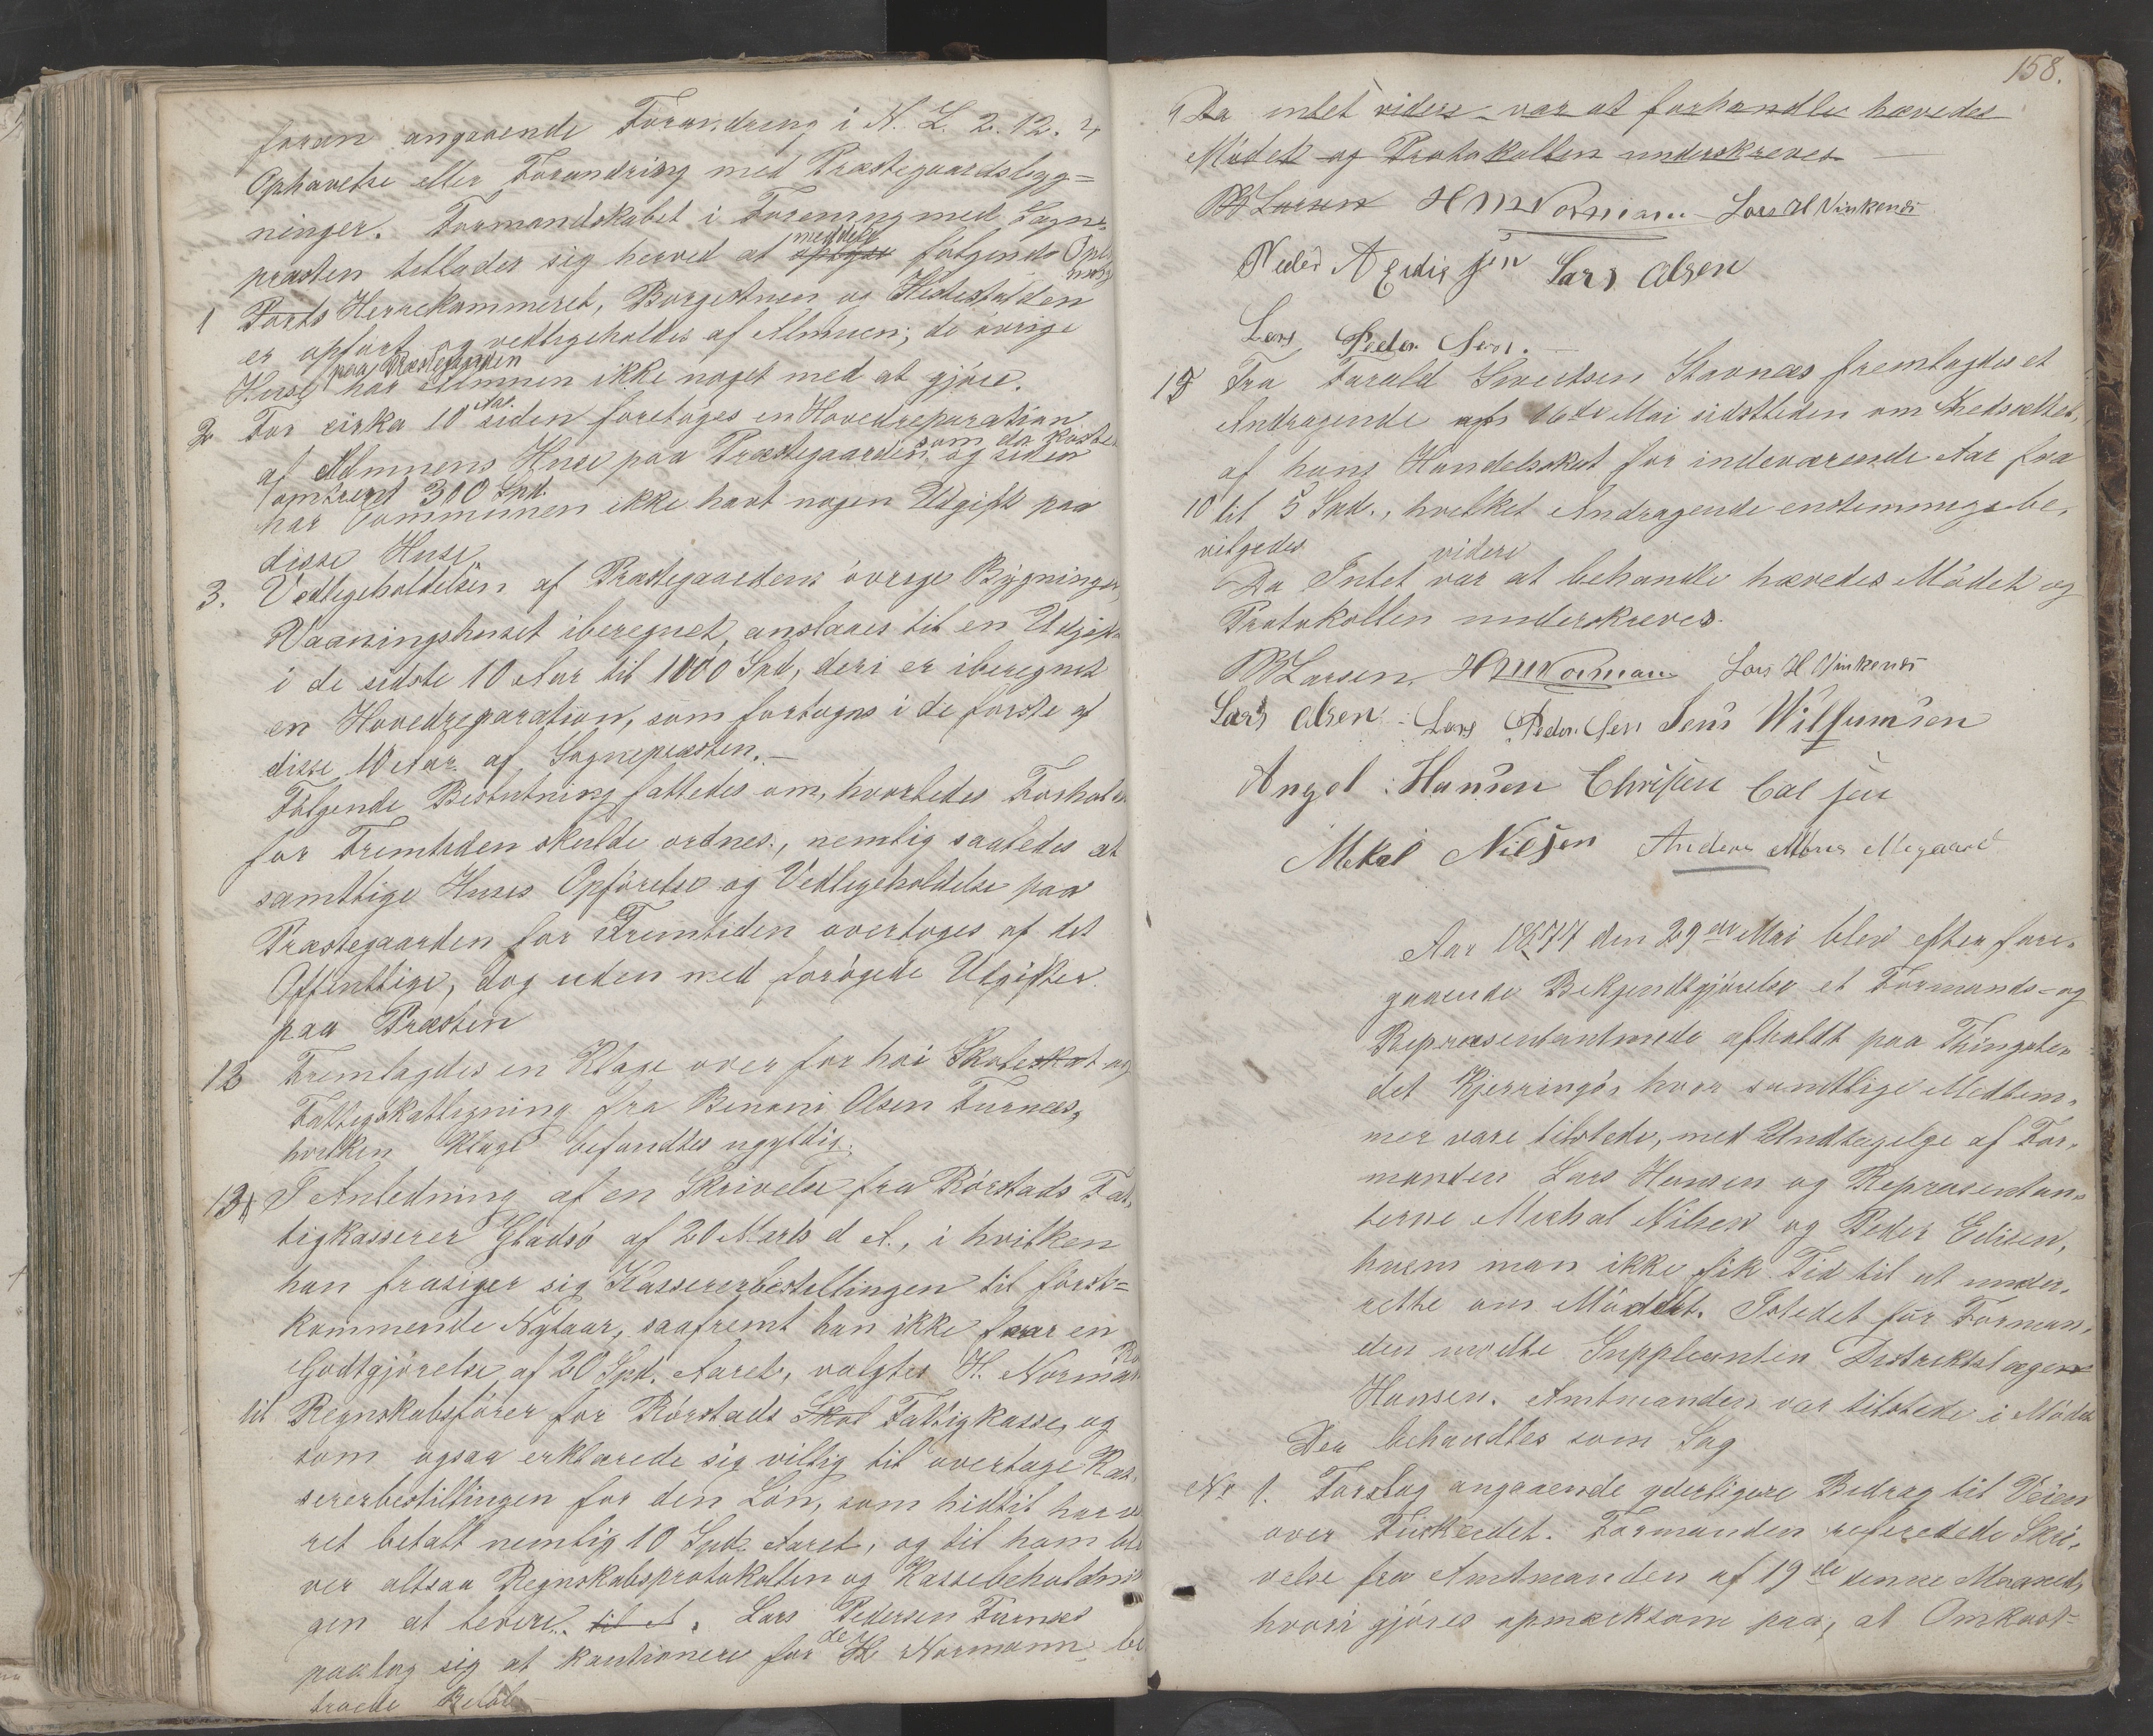 foran angaaende Forandring i N. L. 2. 12. 4
Ophævelse eller Forandring med Præstegaardsbyg=
ninger. Formandskabet i Forening med Sogne-
præsten tillader sig herved at oplyse meddele følgende Opl
ning
1 Forts Herrekammeret, Borgestuen og Hestestalden
er opført og vedligeholdes af Almuen; de øvrige
Huse paa Præstegaarden har Almuen ikke noget med at gjøre.
2 For cirka 10 Aar siden foretoges en Hovedreparation
af Almuens Huse paa Præstegaarden, som da kostede
omtrent 300 Spd. og siden
har Communen ikke havt nogen Udgift paa
disse Huse
3. Vedligeholdelsen af Præstegaardens øvrige Bygninger,
Vaaningshuset iberegnet, anslaaes til en Udgift
i de sidste 10 Aar til 1000 Spd, deri er iberegnet
en Hovedreparation, som fortoges i de første af
disse 10 Aar af Sognepræsten. –
Følgende Beslutning fattedes om, hvorledes Forholdet
for Fremtiden skulde ordnes, nemlig saaledes at
samtlige Huses Opførelse og Vedligeholdelse paa
Præstegaarden for Fremtiden overtoges af det
Offentlige, dog uden med forøgede Udgifter
paa Præsten
12 Fremlagdes en Klage over for høi Skoleskat og
Fattigskatligning fra Benoni Olsen Furnæs,
hvilken Klage befandtes ugyldig.
13 I Anledning af en Skrivelse fra Rørstads Fat-
tigkasserer Gladsø af 20 Marts d. A., i hvilken
han frasiger sig Kassererbestillingen til først=
kommende Nytaar, saafremt han ikke faaer en
Godtgjørelse af 20 Spd. Aaret, valgtes H. Norman
til Regnskabsfører for Rørstads Skol Fattigkasse, og
som ogsaa erklærede sig villig til overtage Kas-
sererbestillingen for den Løn, som hidtil har væ
ret betalt nemlig 10 Spd. Aaret, og til ham bli
ver altsaa Regnskabsprotokollen og Kassebeholdnin
gen at levere. til A. Lars Pedersen Furnæs
paatog sig at kautionere for de H. Normann be
troede Beløb
158.
Da intet videre var at forhandle hævedes
Mødet og Protokollen underskreves
B Larsen H Norman Lars H Vinkenes
Peder A Edis sen Lars Olsen
Lars Peder Sen.
15 Fra Farald Sivertsen Stavnæs fremlagdes et
Andragende af 16de Mai sidstleden om Nedsættelse
af hans Handelsskat for indeværende Aar fra
10 til 5 Spd., hvilket Andragende enstemmigt be-
vilgedes
Da Intet videre var at behandle hævedes Mødet og
Protokollen underskreves.
B Larsen, H Norman Lars H Vinkenes
Lars Olsen Lars Peder Sen Jens Wilsumsen
Angel Hansen Christen Col sen
Mekal Nielsen Anders Mons Megaard
Aar 1877 den 29de Mai blev efter fore-
gaaende Bekjendtgjørelse et Formands- og
Repræsentantmøde afholdt paa Thingste-
det Kjerringø, hvor samtlige Medlem-
mer vare tilstede, med Undtagelse af For-
manden Lars Hansen og Repræsentan-
terne Michal Nilsen og Peder Edisen,
hvem man ikke fik Tid til at under-
rette om Mødet. Istedet for Forman-
den mødte Suppleanten Distriktslægen
Hansen. Amtmanden var tilstede i Mødet
Der behandles som Sag
No 1. Forslag angaaende yderligere Bidrag til Veien
over Fiskeidet. Formanden refererede Skri-
velse fra Amtmanden af 19de denne Maaned,
hvori gjøres opmærksom paa, at Omkost-